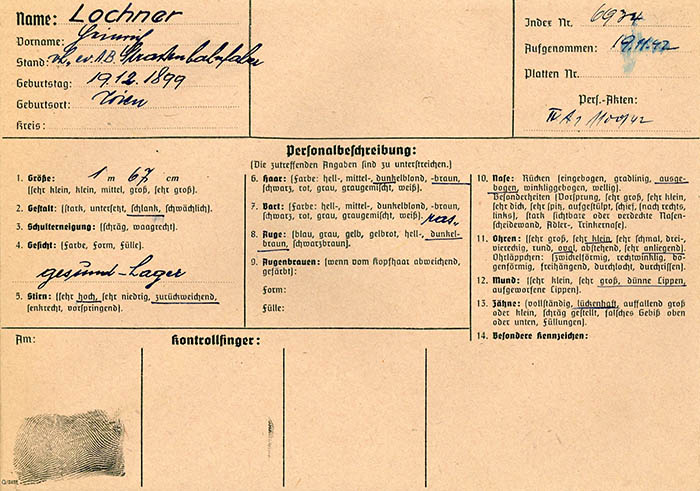 Name: Lochner
Vorname: Heinrich
Stand: vh, ev. AB. Strassenbahnfahrer
Geburtstag: 19.12.1899
Geburtsort: Wien
Kreis:
Index Nr. 6934
Aufgenommen: 19.11.42
Platten Nr.
Pers.-Akten:
IV A1 1109/42
Personalbeschreibung:
(Die zutreffenden Angaben sind zu unterstreichen.)
1. Größe: 1 m 67 cm
(sehr klein, klein, mittel, groß, sehr groß).
2. Gestalt: (stark, untersetzt, schlank, schwächlich).
3. Schulterneigung: (schräg, waagrecht).
4. Gesicht: (Farbe, Form, Fülle).
gesund-hager
5. Stirn: (sehr hoch, sehr niedrig, zurückweichend,
senkrecht, vorspringend).
6. Haar: (Farbe: hell-, mittel-, dunkelblond, -braun,
schwarz, rot, grau, graugemischt, weiß).
7. Bart: (Farbe: hell-, mittel-, dunkelblond, -braun,
schwarz, rot, grau, graugemischt, weiß). ras.
8. Auge: (blau, grau, gelb, gelbrot, hell-, dunkel-
braun, schwarzbraun).
9. Augenbrauen: (wenn vom Kopfhaar abweichend,
gefärbt):
Form:
Fülle:
10. Nase: Rücken (eingebogen, gradlinig, ausge-
bogen, winkliggebogen, wellig).
Besonderheiten (Vorsprung, sehr groß, sehr klein,
sehr dick, sehr spitz, aufgestülpt, schief, [nach rechts,
links], stark sichtbare oder verdeckte Nasen-
scheidewand, Adler-, Trinkernase).
11. Ohren: (sehr groß, sehr klein, sehr schmal, drei-,
viereckig, rund, oval, abstehend, sehr anliegend).
Ohrläppchen: (zwickelförmig, rechtwinklig, bo-
genförmig, freihängend, durchlocht, durchrissen).
12. Mund: (sehr klein, sehr groß, dünne Lippen,
aufgeworfene Lippen).
13. Zähne: (vollständig, lückenhaft, auffallend groß
oder klein, schräg gestellt, falsches Gebiß oben
oder unten, Füllungen).
14. Besondere Kennzeichen:
Am:
Kontrollfinger: